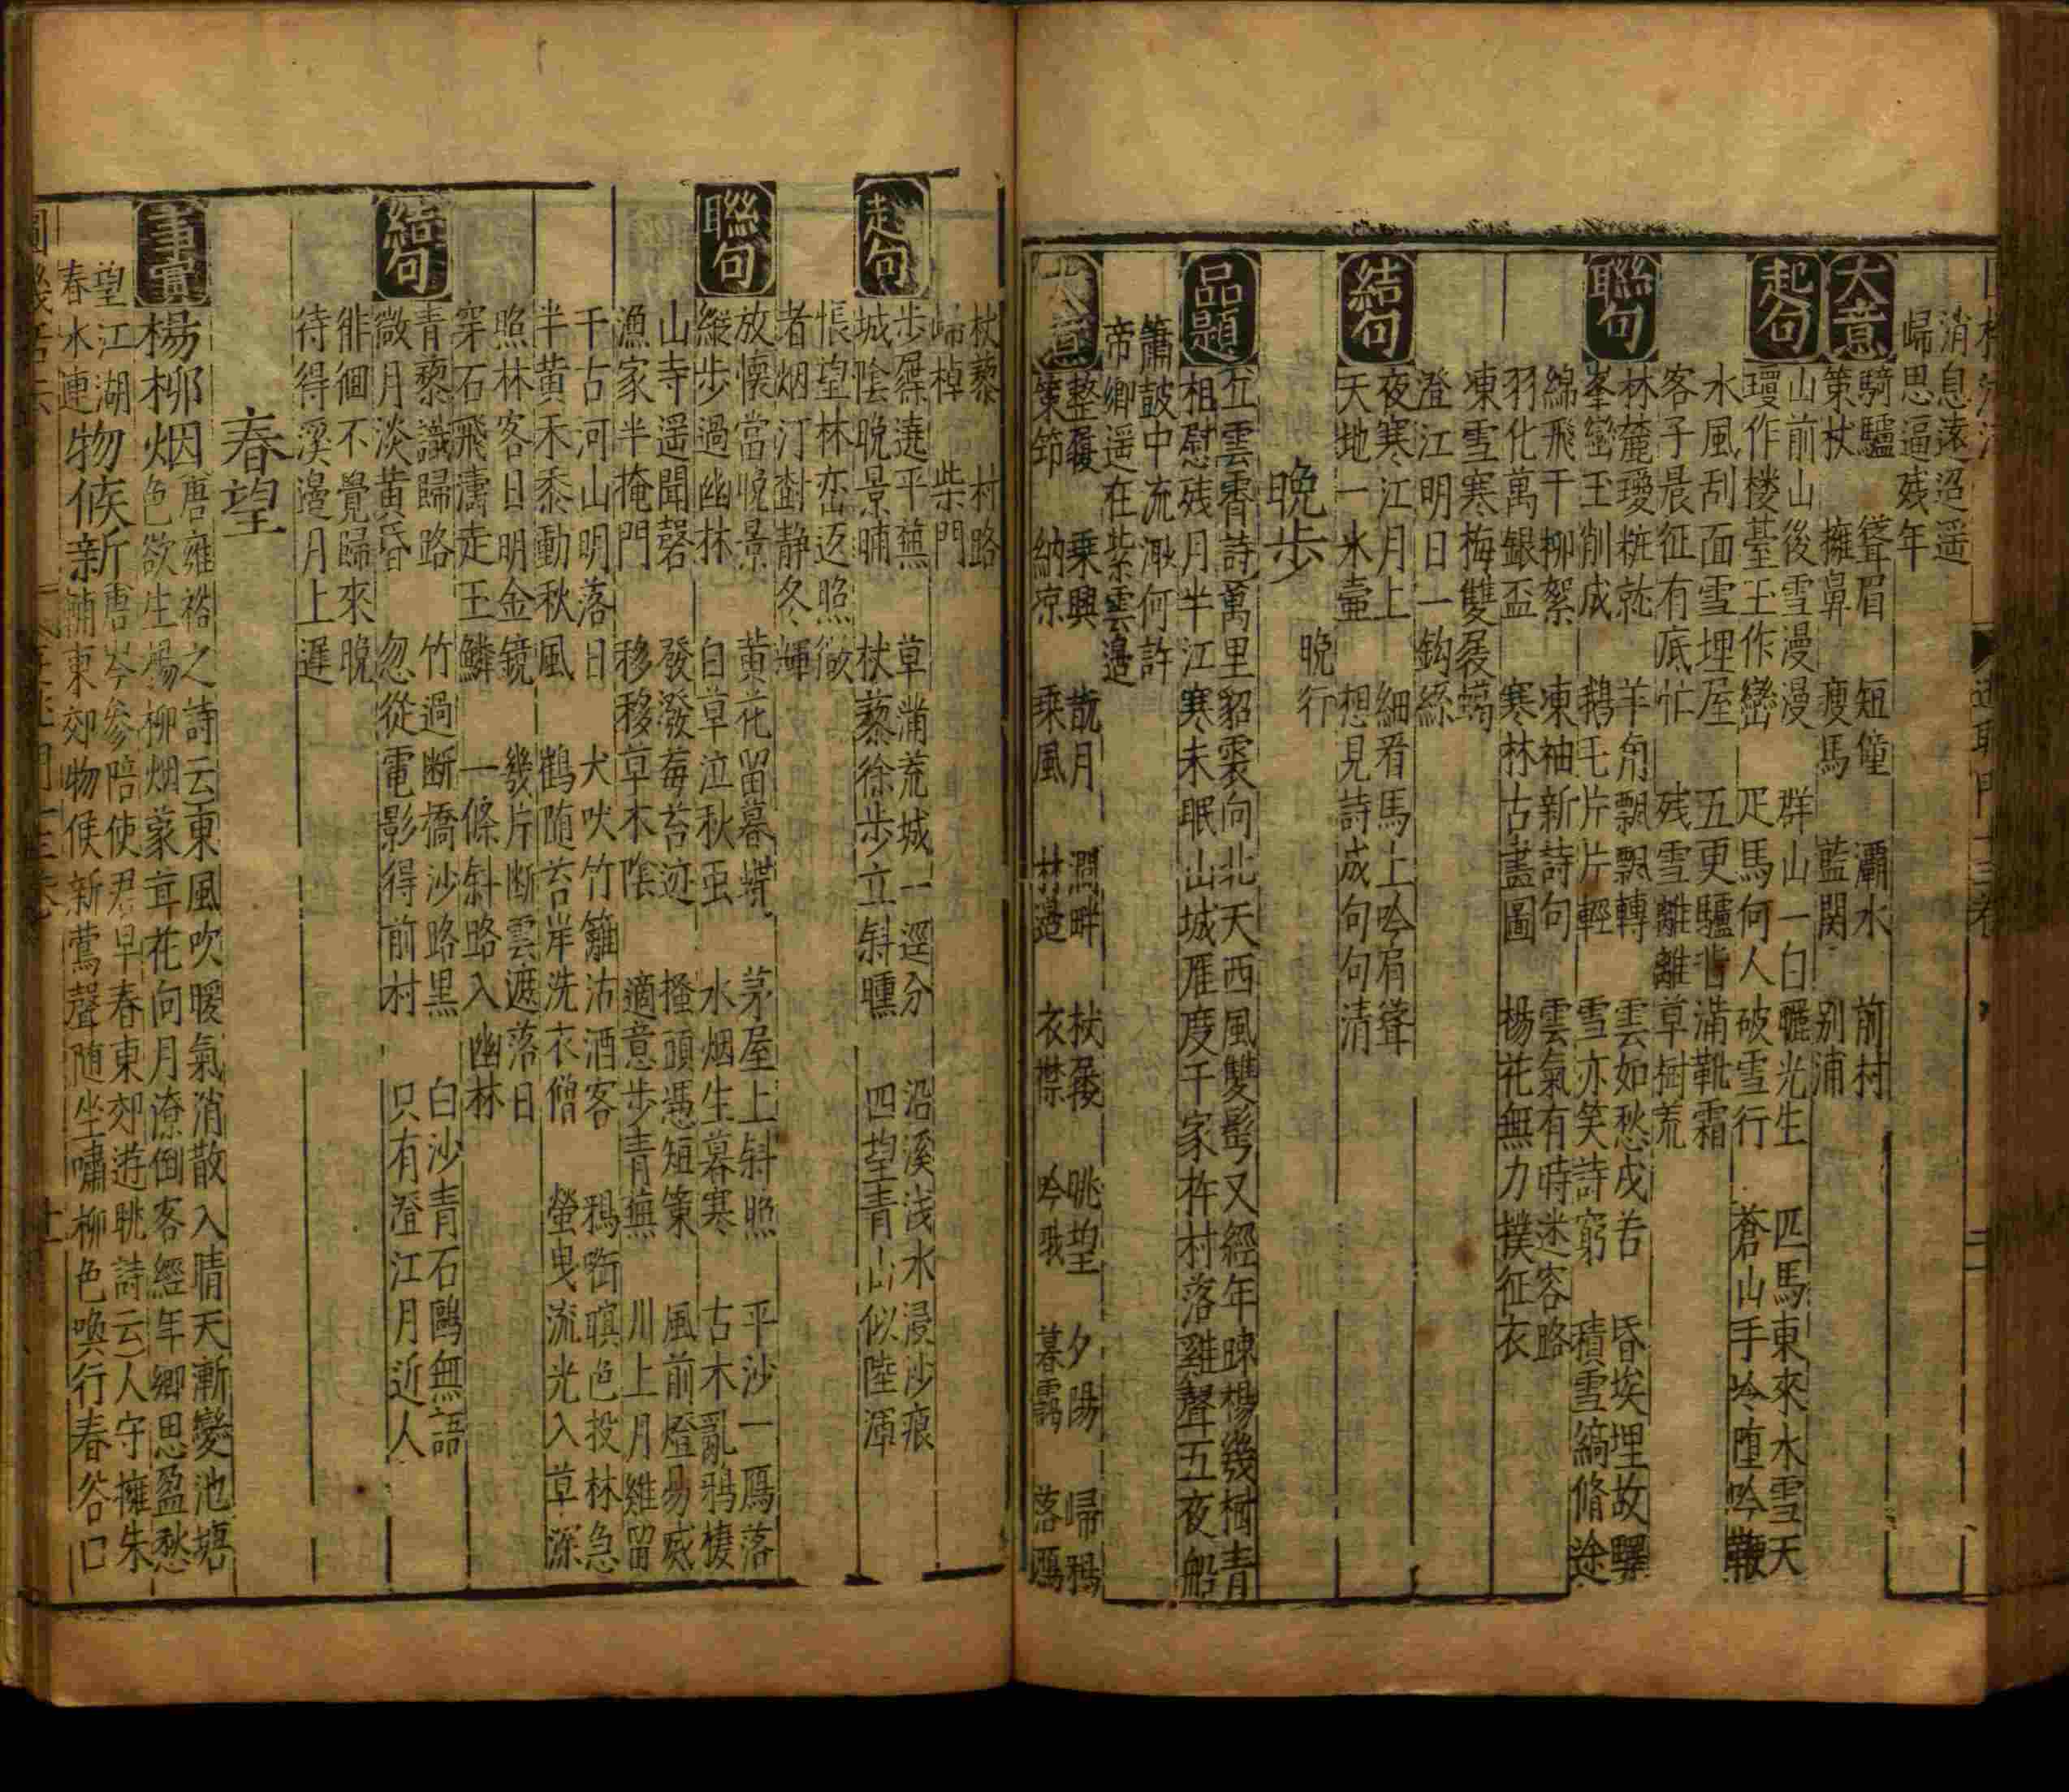 消息遠迢遥
歸思逼残年
大意
騎驢 聳眉 短僮 灞水 前村
策杖 擁鼻 瘦馬 藍関 别浦
起句
山前山後雪漫漫 群山一白曬光生 匹馬東來水雪天
瓊作楼䑓玉作巒 疋馬何人破雪行 蒼山手冷堕吟鞭
水風刮面雪埋屋 五更驢背滿靴霜
客子晨征有底忙 残雪離離草樹荒
聯句
林麓瓊粧就 羊角飄飄轉 雲如愁戍苦 昏埃埋故驛
峯巒玉削成 鵝毛片片輕 雪亦笑詩窮 積雪縞脩途
綿飛千柳絮 凍袖新詩句 雲氣有時迷客路
羽化萬銀盃 寒林古畫圖 楊花無力撲征衣
凍雪寒梅雙展蠟
澄江明日一鈎絲
結句
夜寒江月上 細看馬上吟肩聳
天地一氷壷 想見詩成句句清
晩歩 晩行
品題
五雲霄詩萬里貂裘向北天西風雙髩又經年踈楊幾樹青
相慰残月半江寒未眠山城雁度千家杵村落雞聲五夜船
簫皷中流渺何許
帝卿遥在紫雲邉
大意
整履 乗興 翫月 澗畔 杖屦 眺望 夕陽 歸鴉
策筇 納凉 乗風 林邉 衣襟 吟哦 暮靄 落鴈
杖藜 村路
歸棹 柴門
起句
步屧遶平蕪 草滿荒城一逕分 沿溪浅水浸沙痕
城陰晩景晡 杖藜徐步立斜曛 四望青山似陸渾
悵望林巒返照微
者烟汀樹静冬輝
聯句
放懐當晩景 黄花留暮蝶 茅屋上斜照 平沙一鴈落
縱步過幽林 白草泣秋虫 水烟生暮寒 古木亂鴉棲
山寺遥聞磬 發潑莓苔迹 搔頭慿短策 風前燈易烕
漁家半掩門 移移草木陰 適意步青蕪 川上月難留
千古河山明落日 犬吠竹籬沽酒客 鴉啣暝色投林急
半黄禾黍動秋風 鶴随苔岸洗衣僧 螢曳流光入草深
照林客日明金鏡 幾片断雲遮落日
穿石飛濤走玉鱗 一條斜路入幽林
結句
青藜識歸路 竹過断橋沙路黒 白沙青石鷗無語
微月淡黄昏 忽從電影得前村 只有澄江月近人
徘徊不覺歸來晩
待得溪邉月上遲
春望
事實
楊柳烟 唐雍裕之詩云東風吹暖氣消散入晴天漸變池塘
色欲生楊柳烟蒙茸花向月潦倒客經年卿思盈愁
望江湖 春水連物候新 唐岑参陪使君早春東郊遊眺詩云人守擁朱
輔東郊物候新鶯聲随坐嘯柳色喚行春谷口